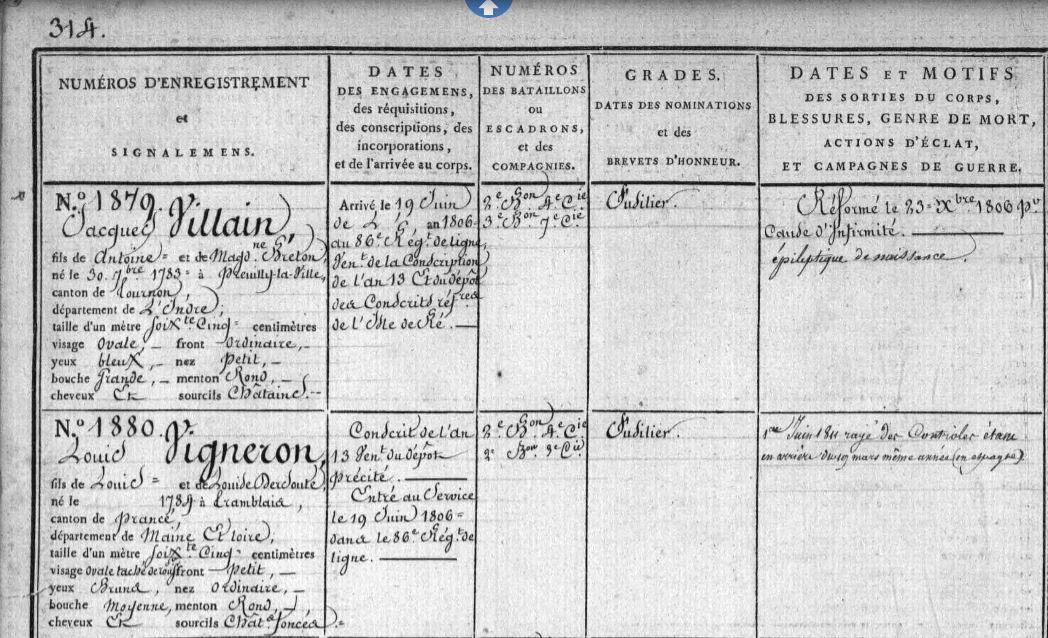 314.
NUMÉROS D'ENREGISTREMENT
et
SIGNALEMENS.
DATES
DES ENGAGEMENS,
des réquisitions,
des conscriptions, des
incorporations,
et de l'arrivée au corps.
NUMÉROS
DES BATAILLONS
ou
ESCADRONS,
et des
COMPAGNIES.
GRADES,
DATES DES NOMINATIONS
et des
BREVETS D'HONNEUR.
DATES ET MOTIFS
DES SORTIES DU CORPS,
BLESSURES, GENRE DE MORT,
ACTIONS D'ÉCLAT,
ET CAMPAGNES DE GUERRE.
N.º 1879.
Jacques Villain,
fils de Antoine = et de Magd.ne Breton,
né le 30. 7bre 1783 = à Preuilly-la-Ville,
canton de Tournon,
département de L'Indre,
taille d'un mètre soixte Cinq = centimètres
visage Ovale, — front Ordinaire, —
yeux bleux, — nez Petit, —
bouche Grande, — menton Rond, —
cheveux Et sourcils Châtains. —
Arrivé le 19 Juin
de an 1806
au 86e Régt. de ligne,
Vent. de la Conscription
de l'an 13 Et du dépôt
des Conscrits réfres
de l'Isle de Ré. —
2e Bon 4e Cie
3e Bon 7e Cie
Fusilier.
Réformé le 23 = Xbre 1806 pr
Cause d'Infirmité. —
épileptique de naissance.
N.º 1880.
Louis Vigneron,
fils de Louis = et de Louise
né le 1784 à
canton de
département de Maine Et loire,
taille d'un mètre soixte Cinq = centimètres
visage Ovale taché de rouss front Petit, —
yeux Bruns, nez Ordinaire, —
bouche Moyenne, menton Rond, —
cheveux Et sourcils Chats foncés. =
Conscrit de l'an
13 Vent. du dépôt
précité. —
Entré au Service
le 19 Juin 1806 =
dans le 86e Régt. de
ligne. —
2e Bon 4e Cie
2e Bon 3e Cie
Fusilier.
1er Juin 1811 rayé des Controles étant
en arrière du 19 mars même année (en espagne)